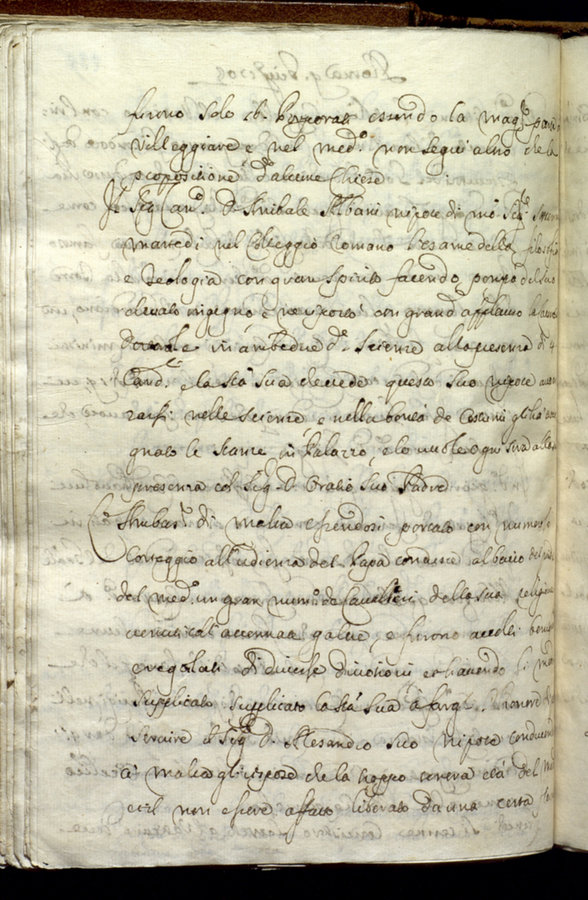 furono solo 16. Porporati essendo la mag.r parte
Villeggiare e nel med.o non seguì altro che la
proposizione d'alcune Chiese
Il Sig. Can.co D. Annibale Albani nipote di
martedì nel Colleggio Romano l'esame della filosofia
e Teologia con gran spirito facendo pompa del suo
elevato ingegno e ne riportò con grand'applauso la laurea
Dottorale in ambedue d.e Scienze alla presenza di 4
Card. e la S.tà Sua che vede questo suo nipote avan
zarsi nelle scienze e nella bontà de Costumi gli hà asse
gnato le stanze in Palazzo, e lo vuole ogni sera alla
presenza col Sig. D. Oratio suo Padre
L'Ambas.re di Malta essendosi portato con numeroso
Corteggio all'udienza del Papa condusse al bacio del piede
del med.o un gran num.o de Cavalieri della sua religione
venuti coll'accennate galere, e furono accolti
e regalati di diverse divotioni et havendo il med.o
supplicato supplicato la S.tà Sua à fargl. l'honore di
servire il Sig. D. Alesandro suo Nipote conducendo
à Malta gli rispose che la troppo tenera età del
et il non essere affatto liberato da una certa